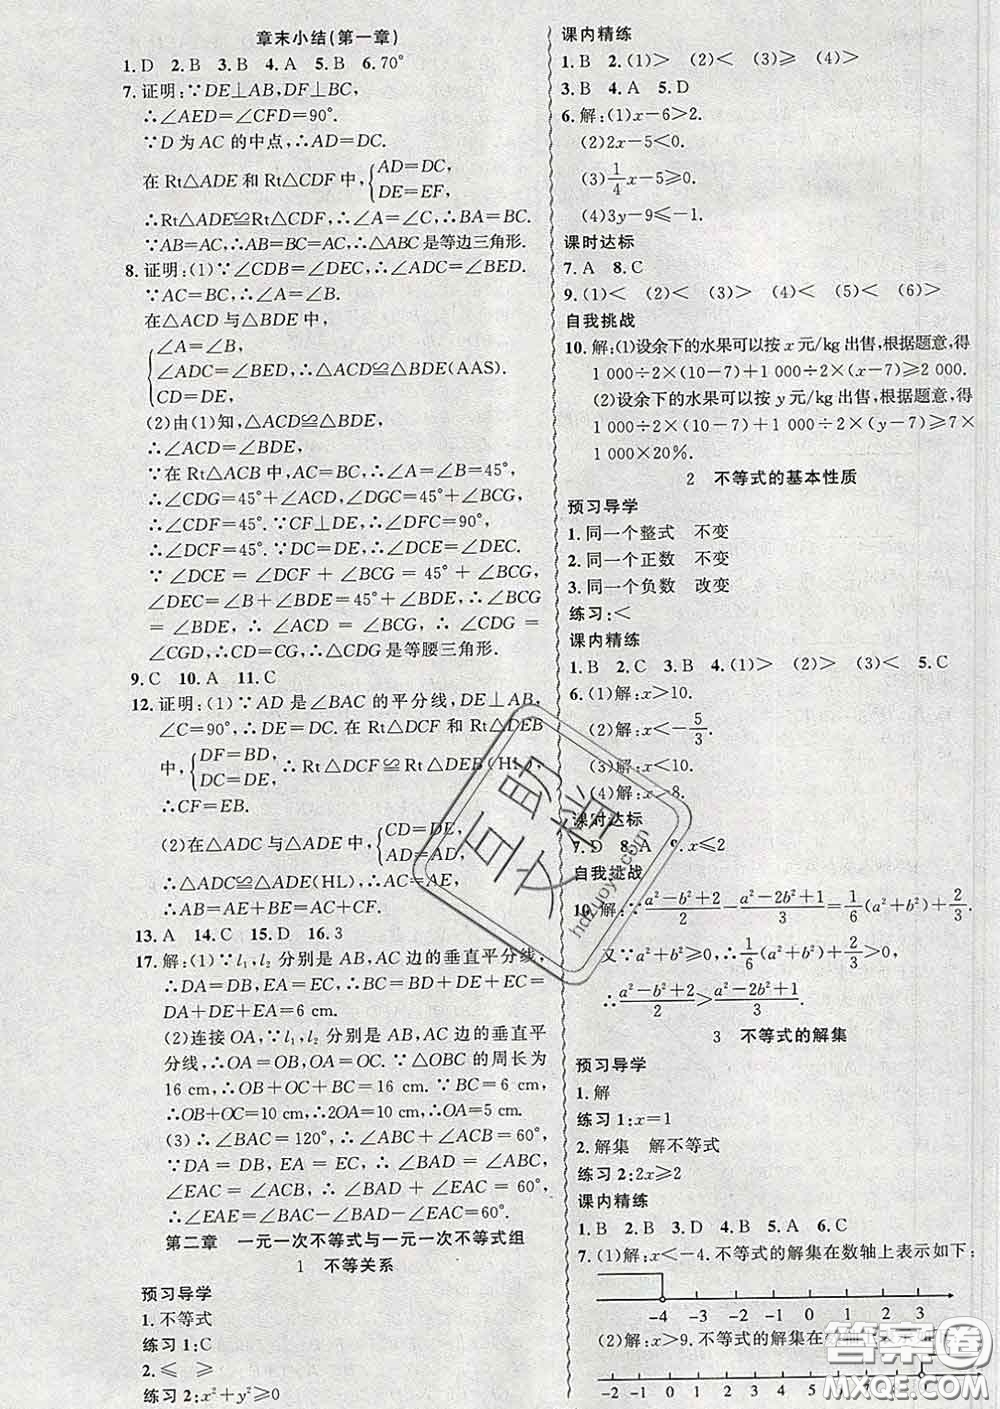 章末小结(第一章)
1.D 2.B 3.B 4.A 5.B 6.70°
7.证明:∵DE⊥AB,DF⊥BC,
∴∠AED=∠CFD=90°.
∵D为AC的中点,∴AD=DC.
在Rt△ADE和Rt△CDF中,{AD=DC,
DE=EF,
∴Rt△ADE≌Rt△CDF,∴∠A=∠C,∴BA=BC.
∵AB=AC,∴AB=BC=AC,∴△ABC是等边三角形.
8.证明:(1)∵∠CDB=∠DEC,∴∠ADC=∠BED.
∵AC=BC,∴∠A=∠B.
在△ACD与△BDE中,
{∠A=∠B,
∠ADC=∠BED,∴△ACD≌△BDE(AAS).
CD=DE,
(2)由(1)知,△ACD≌△BDE,
∴∠ACD=∠BDE,
∵在Rt△ACB中,AC=BC,∴∠A=∠B=45°,
∴∠CDG=45°+∠ACD,∠DGC=45°+∠BCG,
∴∠CDF=45°.∵CF⊥DE,∴∠DFC=90°,
∴∠DCF=45°.∵DC=DE,∴∠DCE=∠DEC.
∵∠DCE=∠DCF+∠BCG=45°+∠BCG,
∠DEC=∠B+∠BDE=45°+∠BDE,∴∠BCG
=∠BDE,∴∠ACD=∠BCG,∴∠CDG=
∠CGD,∴CD=CG,∴△CDG是等腰三角形.
9.C 10.A 11.C
12.证明:(1)∵AD是∠BAC的平分线,DE⊥AB,
∠C=90°,∴DE=DC.在Rt△DCF和Rt△DEB
中,{DF=BD,
DC=DE,∴Rt△DCF≌Rt△DEB(HL),
∴CF=EB.
(2)在△ADC与△ADE中,{CD=DE,
AD=AD,
∴△ADC≌△ADE(HL),∴AC=AE,
∴AB=AE+BE=AC+CF.
13.A 14.C 15.D 16.3
17.解:(1)∵l₁,l₂分别是AB,AC边的垂直平分线,
∴DA=DB,EA=EC,∴BC=BD+DE+EC=
DA+DE+EA=6 cm.
(2)连接OA,∵l₁,l₂分别是AB,AC边的垂直平
分线,∴OA=OB,OA=OC.∵△OBC的周长为
16 cm,∴OB+OC+BC=16 cm.∵BC=6 cm,
∴OB+OC=10 cm,∴2OA=10 cm,∴OA=5 cm.
(3)∴∠BAC=120°,∴∠ABC+∠ACB=60°.
∵DA=DB,EA=EC,∴∠BAD=∠ABC,
∠EAC=∠ACB,∴∠BAD+∠EAC=60°,
∴∠EAE=∠BAC-∠BAD-∠EAC=60°.
第二章 一元一次不等式与一元一次不等式组
1 不等关系
预习导学
1.不等式
练习1:C
2.≤ ≥
练习2:x²+y²≥0
课内精练
1.B 2.(1)> (2)< (3)≥ (4)>
3.B 4.A 5.D
6.解:(1)x-6>2.
(2)2x-5<0.
(3)1/4x-5≥0.
(4)3y-9≤-1.
课时达标
7.A 8.C
9.(1)< (2)< (3)> (4)< (5)< (6)>
自我挑战
10.解:(1)设余下的水果可以按x元/kg出售,根据题意,得
1 000÷2×(10-7)+1 000÷2×(x-7)≥2 000.
(2)设余下的水果可以按y元/kg出售,根据题意,得
1 000÷2×(10-7)+1 000÷2×(y-7)≥7×
1 000×20%.
2 不等式的基本性质
预习导学
1.同一个整式 不变
2.同一个正数 不变
3.同一个负数 改变
练习:<
课内精练
1.B 2.C 3.B 4.(1)> (2)> (3)< 5.C
6.(1)解:x>10.
(2)解:x<-5/3.
(3)解:x<10.
(4)解:x>8.
课时达标
7.D 8.A 9.x≤2
自我挑战
10.解:∵(a²-b²+2)/2-(a²-2b²+1)/3=1/6(a²+b²)+2/3,
又∵a²+b²≥0,∴1/6(a²+b²)+2/3>0,
∴(a²-b²+2)/2>(a²-2b²+1)/3.
3 不等式的解集
预习导学
1.解
练习1:x=1
2.解集 解不等式
练习2:2x≥2
课内精练
1.B 2.B 3.D 4.D 5.A 6.C
7.(1)解:x<-4.不等式的解集在数轴上表示如下:
-4 -3 -2 -1 0 1 2 3
(2)解:x>9.不等式的解集在数轴上表示如下:
-2 -1 0 1 2 3 4 5 6 7 8 9
互助文档
hdzuoye.com
答案圈
MXQE.COM